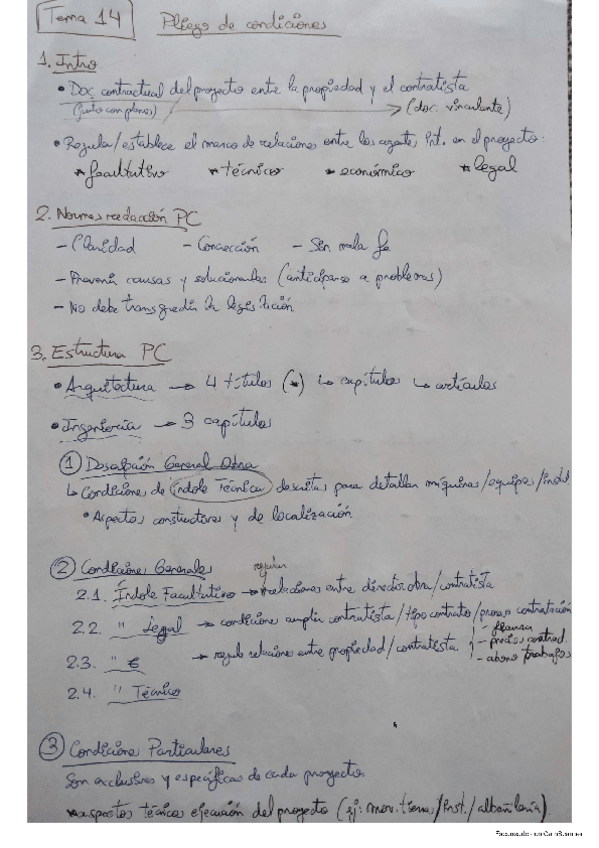 Tema 14 Pliego de condiciones
1. Intro
• Doc contractual del proyecto entre la propiedad y el contratista
(junto con planos) → (doc. vinculante)
• Regula/establece el marco de relaciones entre los agentes int. en el proyecto:
* facultativo * técnico * económico * legal
2. Normas redacción PC
- Claridad - Concreción - Sin mala fe
- Prevenir causas y solucionarlas (anticiparse a problemas)
- No debe transgredir la legislación
3. Estructura PC
• Arquitectura → 4 títulos (*) ↳ capítulos ↳ artículos
• Ingeniería → 3 capítulos
① Descripción General Obra
↳ Condiciones de índole Técnica descritas para detallar máquinas/equipos/inst
• Aspectos constructores y de localización
② Condiciones Generales
regulan
2.1. Índole Facultativo → relaciones entre director obra/contratista
2.2. " Legal → condiciones contratista/tipo contrato/proceso contratación
2.3. " € → regula relaciones entre propiedad/contratista - fianza
- precios contrad.
- abono trabajos
2.4. " Técnico
③ Condiciones Particulares
Son exclusivas y específicas de cada proyecto
* aspectos técnicos ejecución del proyecto (ej: mov. tierras/inst./albañilería)